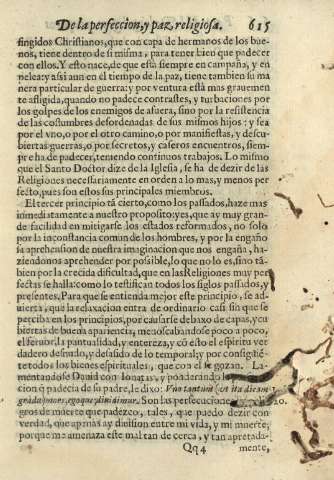 De la perfeccion, y paz religiosa. 615
fingidos Christianos, que con capa de hermanos de los bue-
nos, tiene dentro de si misma, para tener bien que padecer
con ellos. Y esto nace, de que està siempre en campaña, y en
pelea: y assi aun en el tiempo de la paz, tiene tambien su ma
nera particular de guerra: y por ventura està mas grauemen
te afligida, quando no padece contrastes, y turbaciones por
los golpes de los enemigos de afuera, sino por la resistencia
de las costumbres desordenadas de sus mismos hijos: y sea
por el vno, o por el otro camino, o por manifiestas, y descu-
biertas guerras, o por secretos, y caseros encuentros, siem-
pre ha de padecer, teniendo continuos trabajos. Lo mismo
que el Santo Doctor dize de la Iglesia, se ha de dezir de las
Religiones necessariamente en orden a lo mas, y menos per
fecto, pues son estos sus principales miembros.
El tercer principio tã cierto, como los passados, haze mas
inmediatamente a nuestro proposito: yes, que ay muy gran-
de facilidad en mitigarse los estados reformados, no solo
por la inconstancia comun de los hombres, y por la engaño
sa aprehension de nuestra imaginacion que nos engaña, ha-
ziendonos aprehender por possible, lo que no lo es, sino tã-
bien por la crecida dificultad, que en las Religiones muy per
fectas se halla: como lo testifican todos los siglos passados, y
presentes. Para que se entienda mejor este principio, se ad-
uierta, que la relaxacion entra de ordinario casi sin que se
perciba en los principios, por causarse debaxo de capas, y cu
biertas de buena apariencia, menoscabandose poco a poco,
el feruor, la puntualidad, y entereza, y cõ esto el espiritu ver
dadero desnudo, y desasido de lo temporal; y por consiguiẽ-
te todos los bienes espirituales, que con el se gozan. La-
mentandose Dauid con Ionatas, y ponderando la
cion q padecia de su padre, le dixo: Vno tantum (vt ita dicam
gradu) mors, egoque diuidimur. Son las persecuciones
gros de muerte que padezco, tales, que puedo dezir con
verdad, que apenas ay diuision entre mi vida, y mi muerte;
porque me amenaza este mal tan de cerca, y tan apretada-
Qq 4 mente,